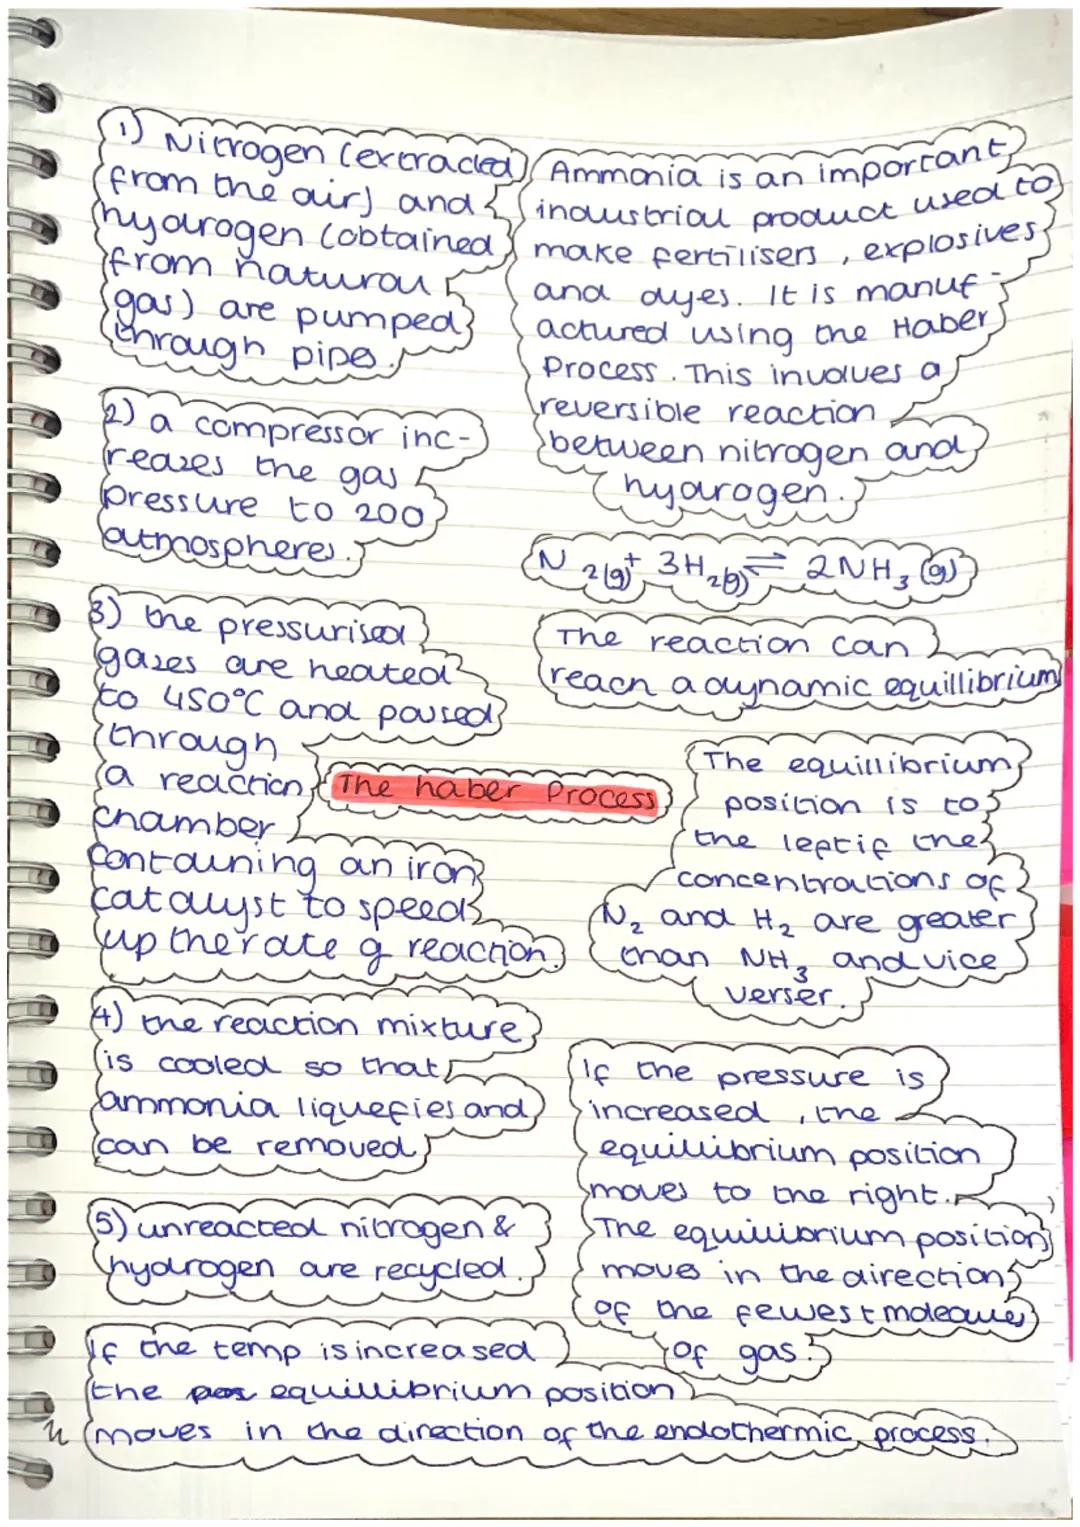 1) Nitrogen (extracted
from the air) and
hydrogen (obtained
from natural
gas) are pumped
through pipes.
Ammonia is an important
industrial product used to
make fertilisers, explosives
and dyes. It is manuf-
actured using the Haber
Process. This involves a
reversible reaction
between nitrogen and
hydrogen.
2) a compressor inc-
reases the gas
pressure to 200
atmospheres.
N2(g) + 3H2(g) ⇌ 2NH3(g)
3) the pressurised
gases are heated
to 450°C and passed
through
a reaction
chamber
containing an iron
catalyst to speed
up the rate of reaction.
The reaction can
reach a dynamic equillibrium
The haber Process
The equillibrium
position is to
the left if the
concentrations of
N2 and H2 are greater
than NH3 and vice
verser.
4) the reaction mixture
is cooled so that
ammonia liquefies and
can be removed
If the pressure is
increased, the
equillibrium position
moves to the right.
The equillibrium position
moves in the direction
of the fewest molecules
of gas.
5) unreacted nitrogen &
hydrogen are recycled.
If the temp is increased
the equillibrium position
moves in the direction of the endothermic process.